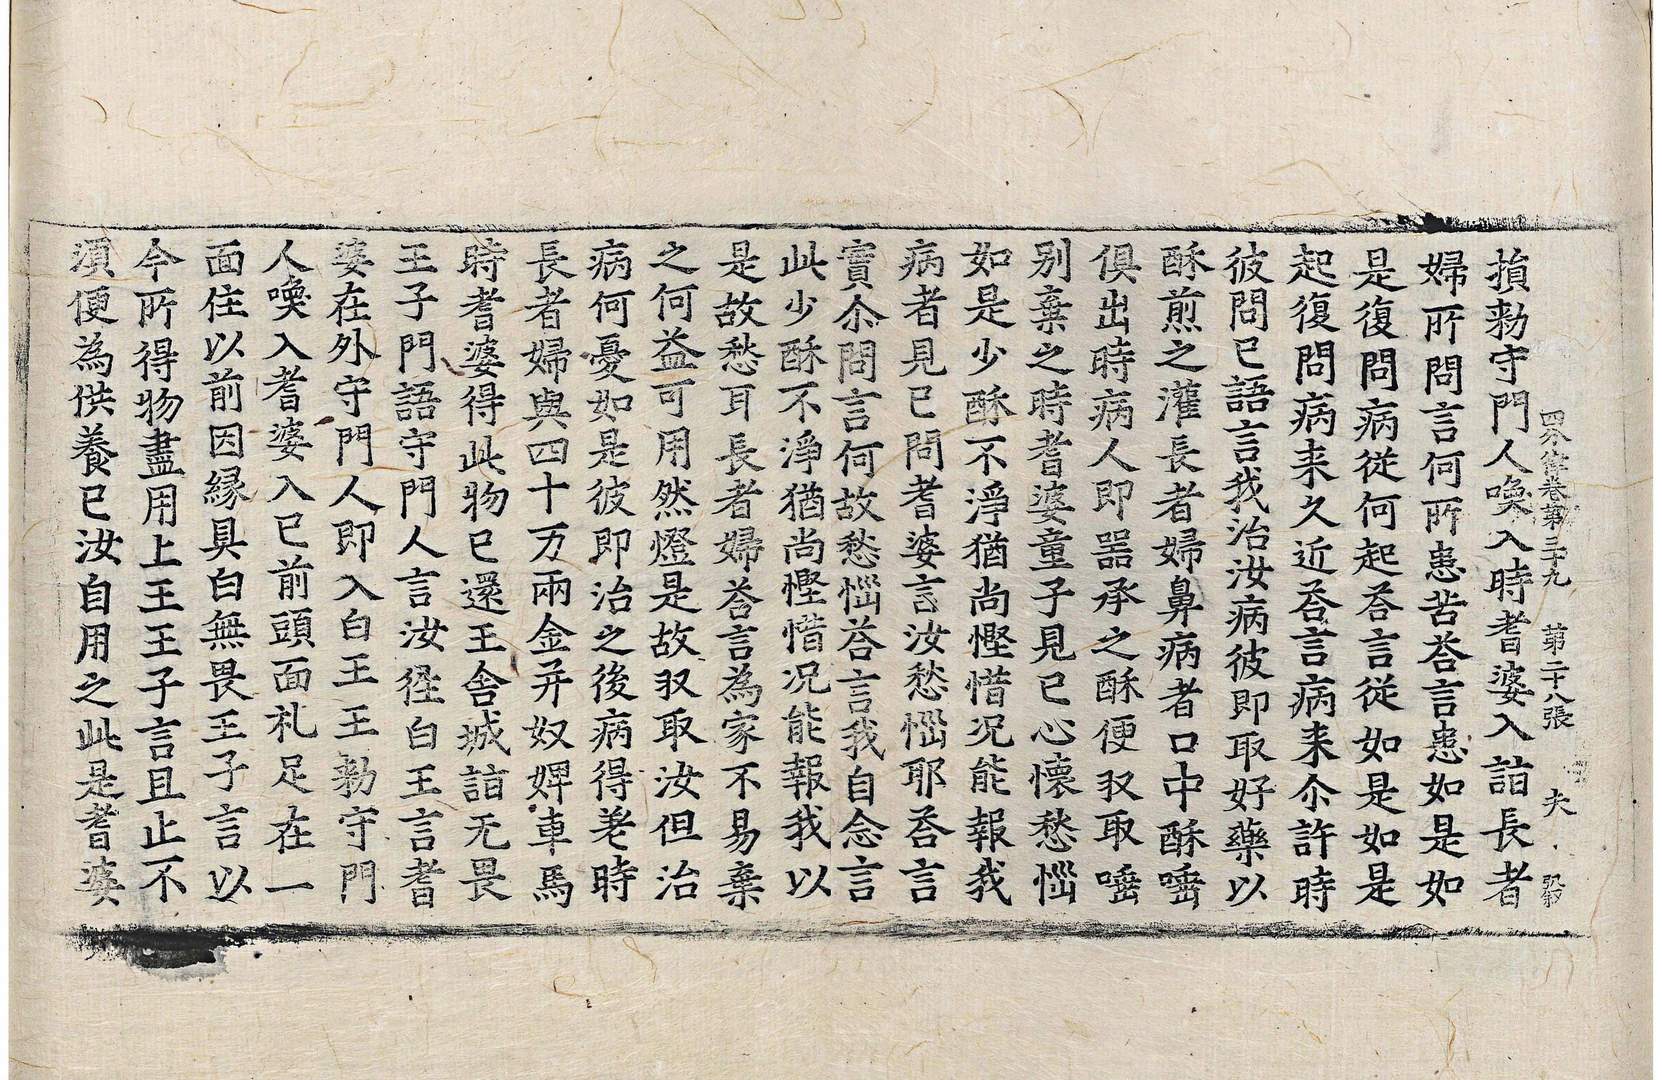 四分律卷第三十九 第二十八張 夫
損勑守門人喚入時耆婆入詣長者
婦所問言何所患苦荅言患如是如
是復問病從何起荅言從如是如是
起復問病来久近荅言病来尒許時
彼問已語言我治汝病彼即取好藥以
酥煎之灌長者婦鼻病者口中酥唾
俱出時病人即器承之酥便収取唾
别棄之時耆婆童子見已心懷愁惱
如是少酥不淨猶尚慳惜况能報我
病者見已問耆婆言汝愁惱耶荅言
實尒問言何故愁惱荅言我自念言
此少酥不淨猶尚慳惜况能報我以
是故愁耳長者婦荅言為家不易棄
之何益可用然燈是故収取汝但治
病何憂如是彼即治之後病得差時
長者婦與四十万兩金并奴婢車馬
時耆婆得此物已還王舍城詣无畏
王子門語守門人言汝徃白王言耆
婆在外守門人即入白王王勑守門
人喚入耆婆入已前頭面礼足在一
面住以前因縁具白無畏王子言以
今所得物盡用上王王子言且止不
湏便為供養已汝自用之此是耆婆